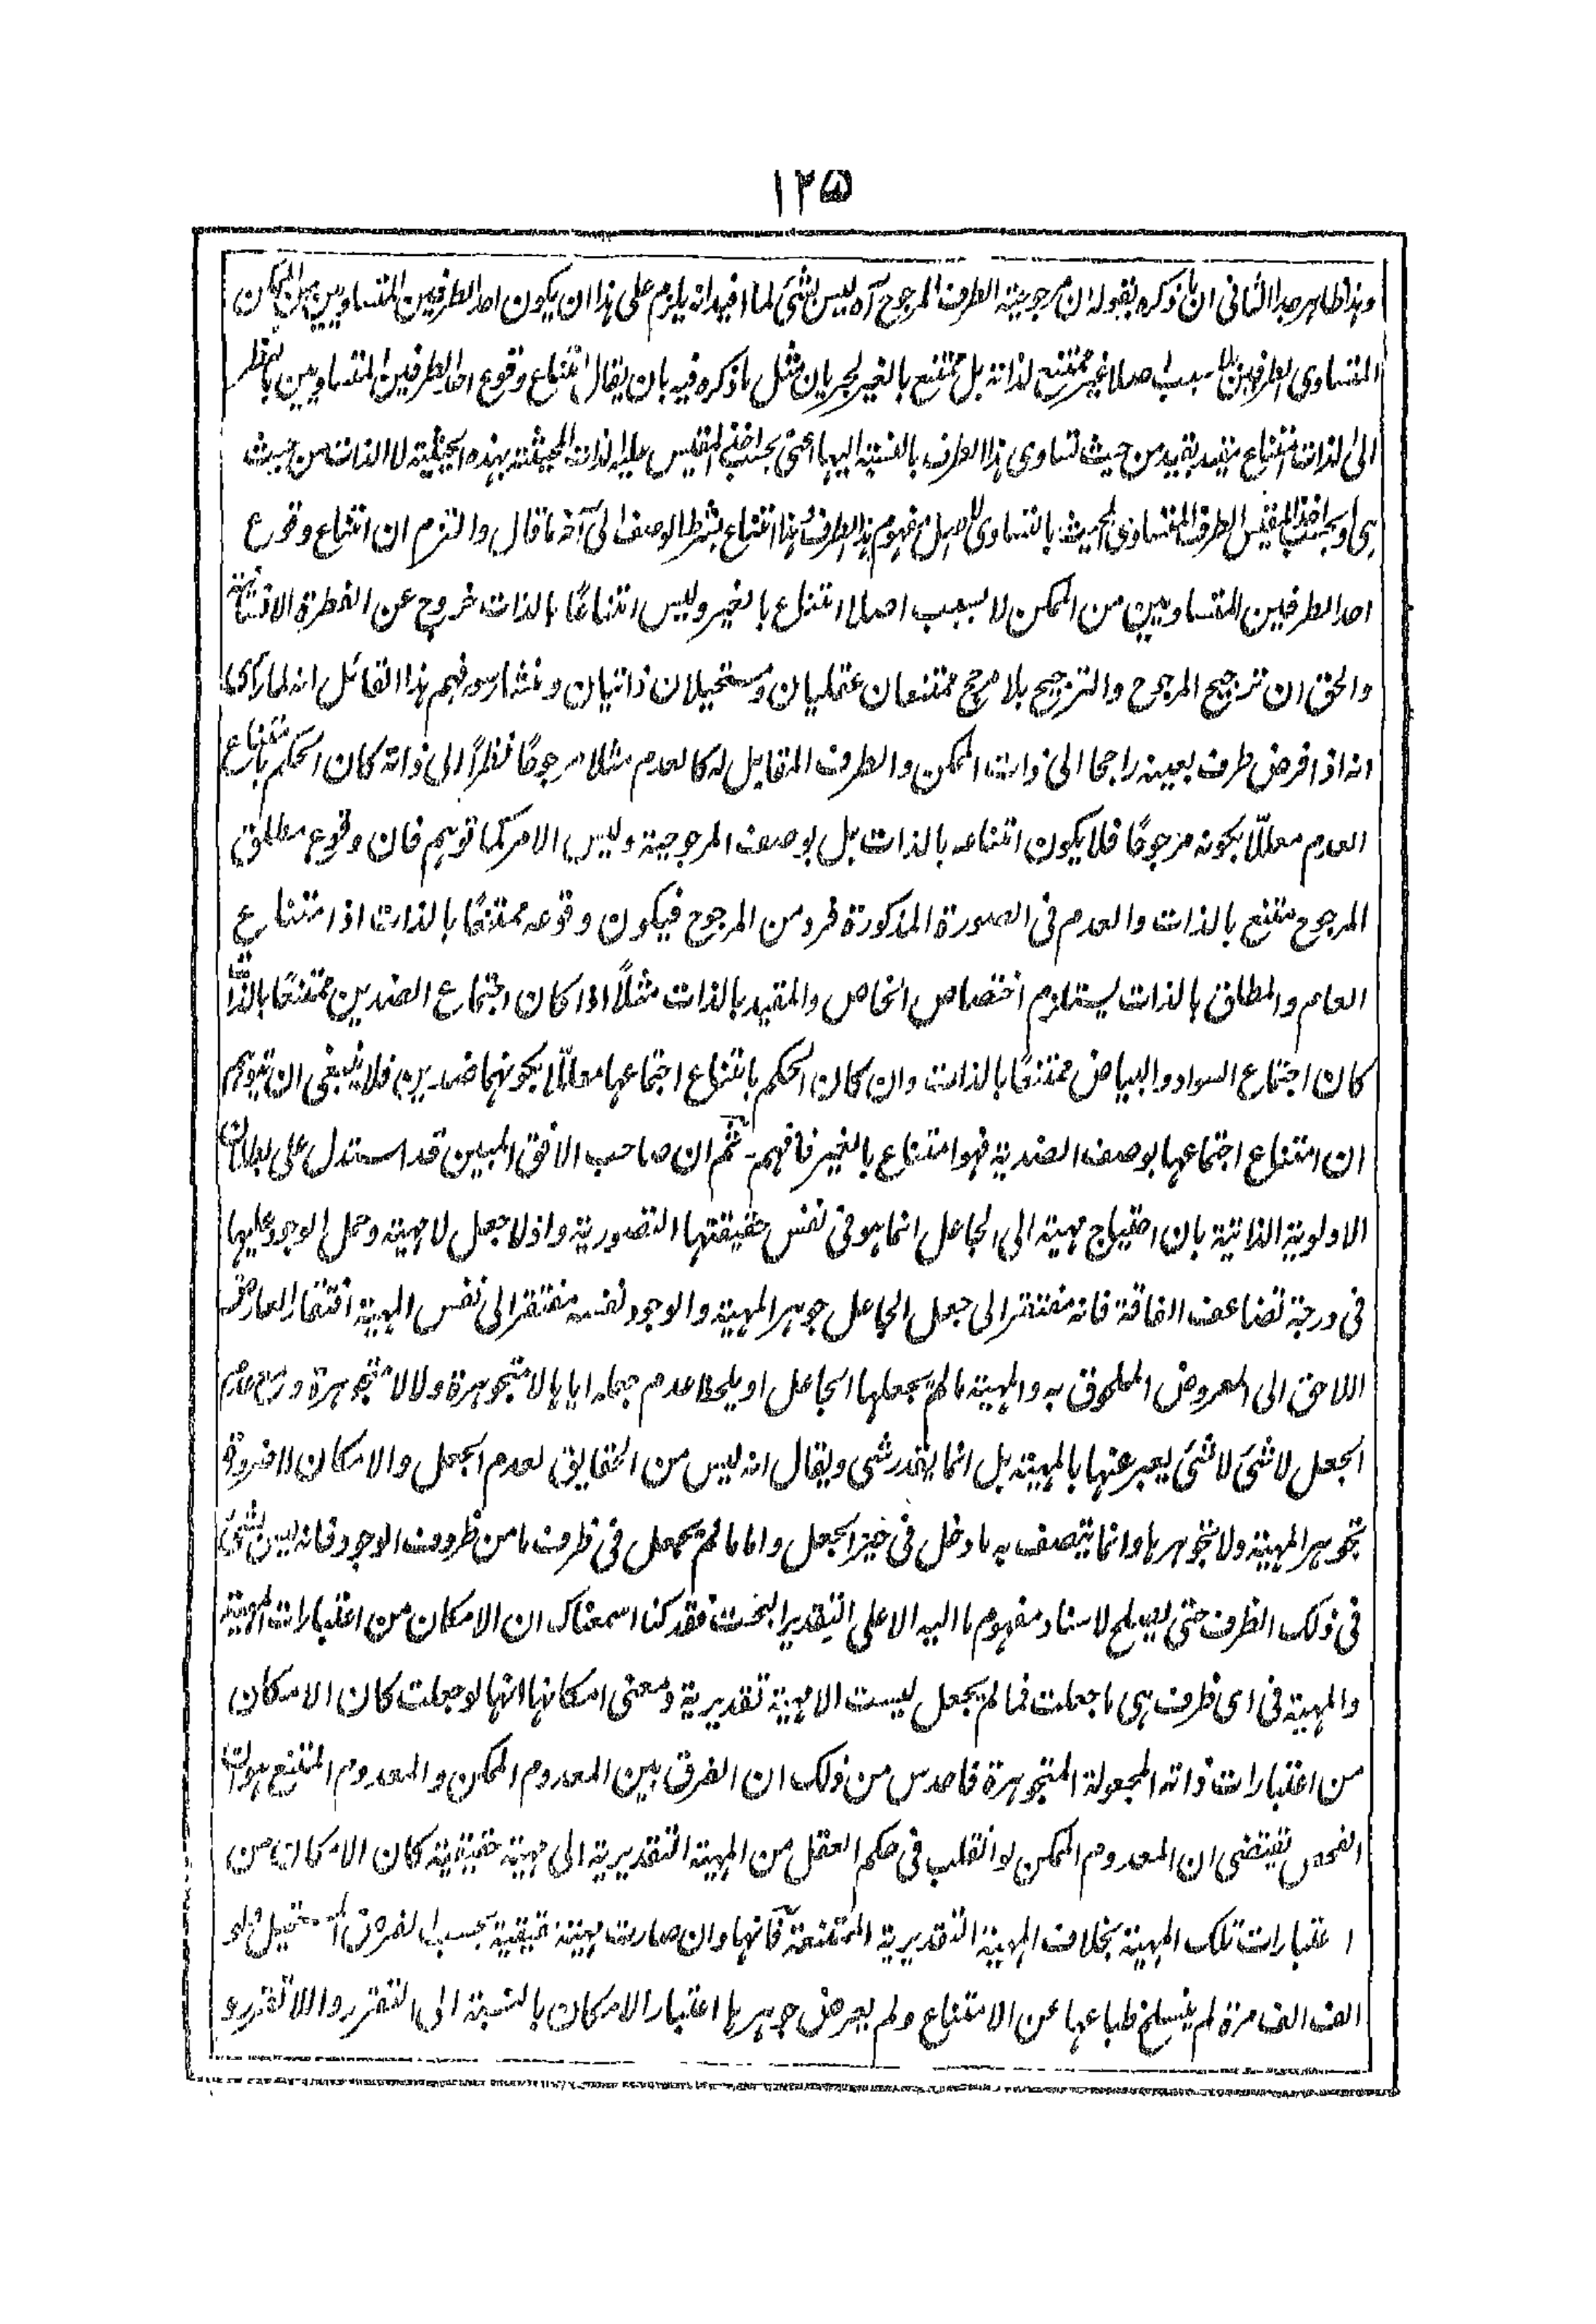 ١٢٥
وهذا ظاهر جدا الثانى ان ما ذكره بقوله ان مرجوحية الطرف المرجوح آه ليس بشئ لما افيد انه يلزم على هذا ان يكون احد الطرفين المتساويين من الممكن
المتساوى الطرفين بلا سبب اصلا غير ممتنع لذاته بل ممتنع بالغير لجريان مثل ما ذكره فيه بان يقال امتناع وقوع احد الطرفين المتساويين بالنظر
الى الذات امتناع مقيد بقيد من حيث تساوى هذا الطرف بالنسبة اليها اعنى بحسب اخذ المقيس عليه الذات المحيثة بهذه الحيثية لا الذات من حيث
هى او بحسب اخذ المقيس الطرف المتساوى المحيث بالتساوى لا اصل مفهوم هذا الطرف هذا امتناع بشرط الوصف الى آخر ما قال والتزم ان امتناع وقوع
احد الطرفين المتساويين من الممكن لا بسبب اصلا امتناع بالغير وليس امتناعًا بالذات خروج عن الفطرة الانسانية
والحق ان ترجيح المرجوح والترجيح بلا مرجح ممتنعان عقليان ومستحيلان ذاتيان ومنشأ سوء فهم هذا القائل انه لما رأى
انه اذا فرض طرف بعينه راجحا الى ذات الممكن والطرف المقابل له كالعدم مثلا مرجوحًا نظرًا الى ذاته كان الحكم بامتناع
العدم معللًا بكونه مرجوحًا فلا يكون امتناعه بالذات بل بوصف المرجوحية وليس الامر كما توهم فان وقوع مطلق
المرجوح ممتنع بالذات والعدم فى الصورة المذكورة فرد من المرجوح فيكون وقوعه ممتنعًا بالذات اذ امتناع
العام والمطلق بالذات يستلزم اختصاص الخاص والمقيد بالذات مثلًا اذا كان اجتماع الضدين ممتنعًا بالذات
كان اجتماع السواد والبياض ممتنعًا بالذات وان كان الحكم بامتناع اجتماعهما معللًا بكونهما ضدين فلا ينبغى ان يتوهم
ان امتناع اجتماعهما بوصف الضدية فهو امتناع بالغير فافهم۔ ثم ان صاحب الافق المبين قد استدل على بطلان
الاولوية الذاتية بان احتياج مهية الى الجاعل انما هو فى نفس حقيقتها التصورية واذ لا جعل لا مهية وحمل الوجود عليها
فى درجة تضاعف الفاقة فانه مفتقر الى جعل الجاعل جوهر المهية والوجود نفسه مفتقر الى نفس المهية افتقار العارض
اللاحق الى المعروض الملحوق به والمهية ما لم يجعلها الجاعل او يلحظ عدم جعله اياها لا متجوهرة ولا لا متجوهرة ومع عدم
الجعل لا شئ لا شئ يعبر عنها بالمهية بل انما يقدر شى ويقال انه ليس من الحقايق لعدم الجعل والامكان لا ضرورة
تجوهر المهية ولا تجوهرها وانما يتصف به ما دخل فى حيز الجعل واما ما لم يجعل فى ظرف ما من ظروف الوجود فانه ليس بشئ
فى ذلك الظرف حتى يصلح لاسناد مفهوم ما اليه الا على التقدير البحت فقد كنا اسمعناك ان الامكان من اعتبارات المهية
والمهية فى اى ظرف هى ما جعلت فما لم يجعل ليست الا مهية تقديرية ومعنى امكانها انها لو جعلت كان الامكان
من اعتبارات ذاته المجعولة المتجوهرة فاحدس من ذلك ان الفرق بين المعدوم الممكن والمعدوم الممتنع هو ان
الفحص يقتضى ان المعدوم الممكن لو انقلب فى حكم العقل من المهية التقديرية الى مهية حقيقية كان الامكان من
اعتبارات تلك المهية بخلاف المهية التقديرية الممتنعة فانها وان صارت مهية حقيقية بحسب الفرض المستحيل ولو
الف الف مرة لم ينسلخ طباعها عن الامتناع ولم يعرض جوهرها اعتبار الامكان بالنسبة الى التقرر واللاتقرر و